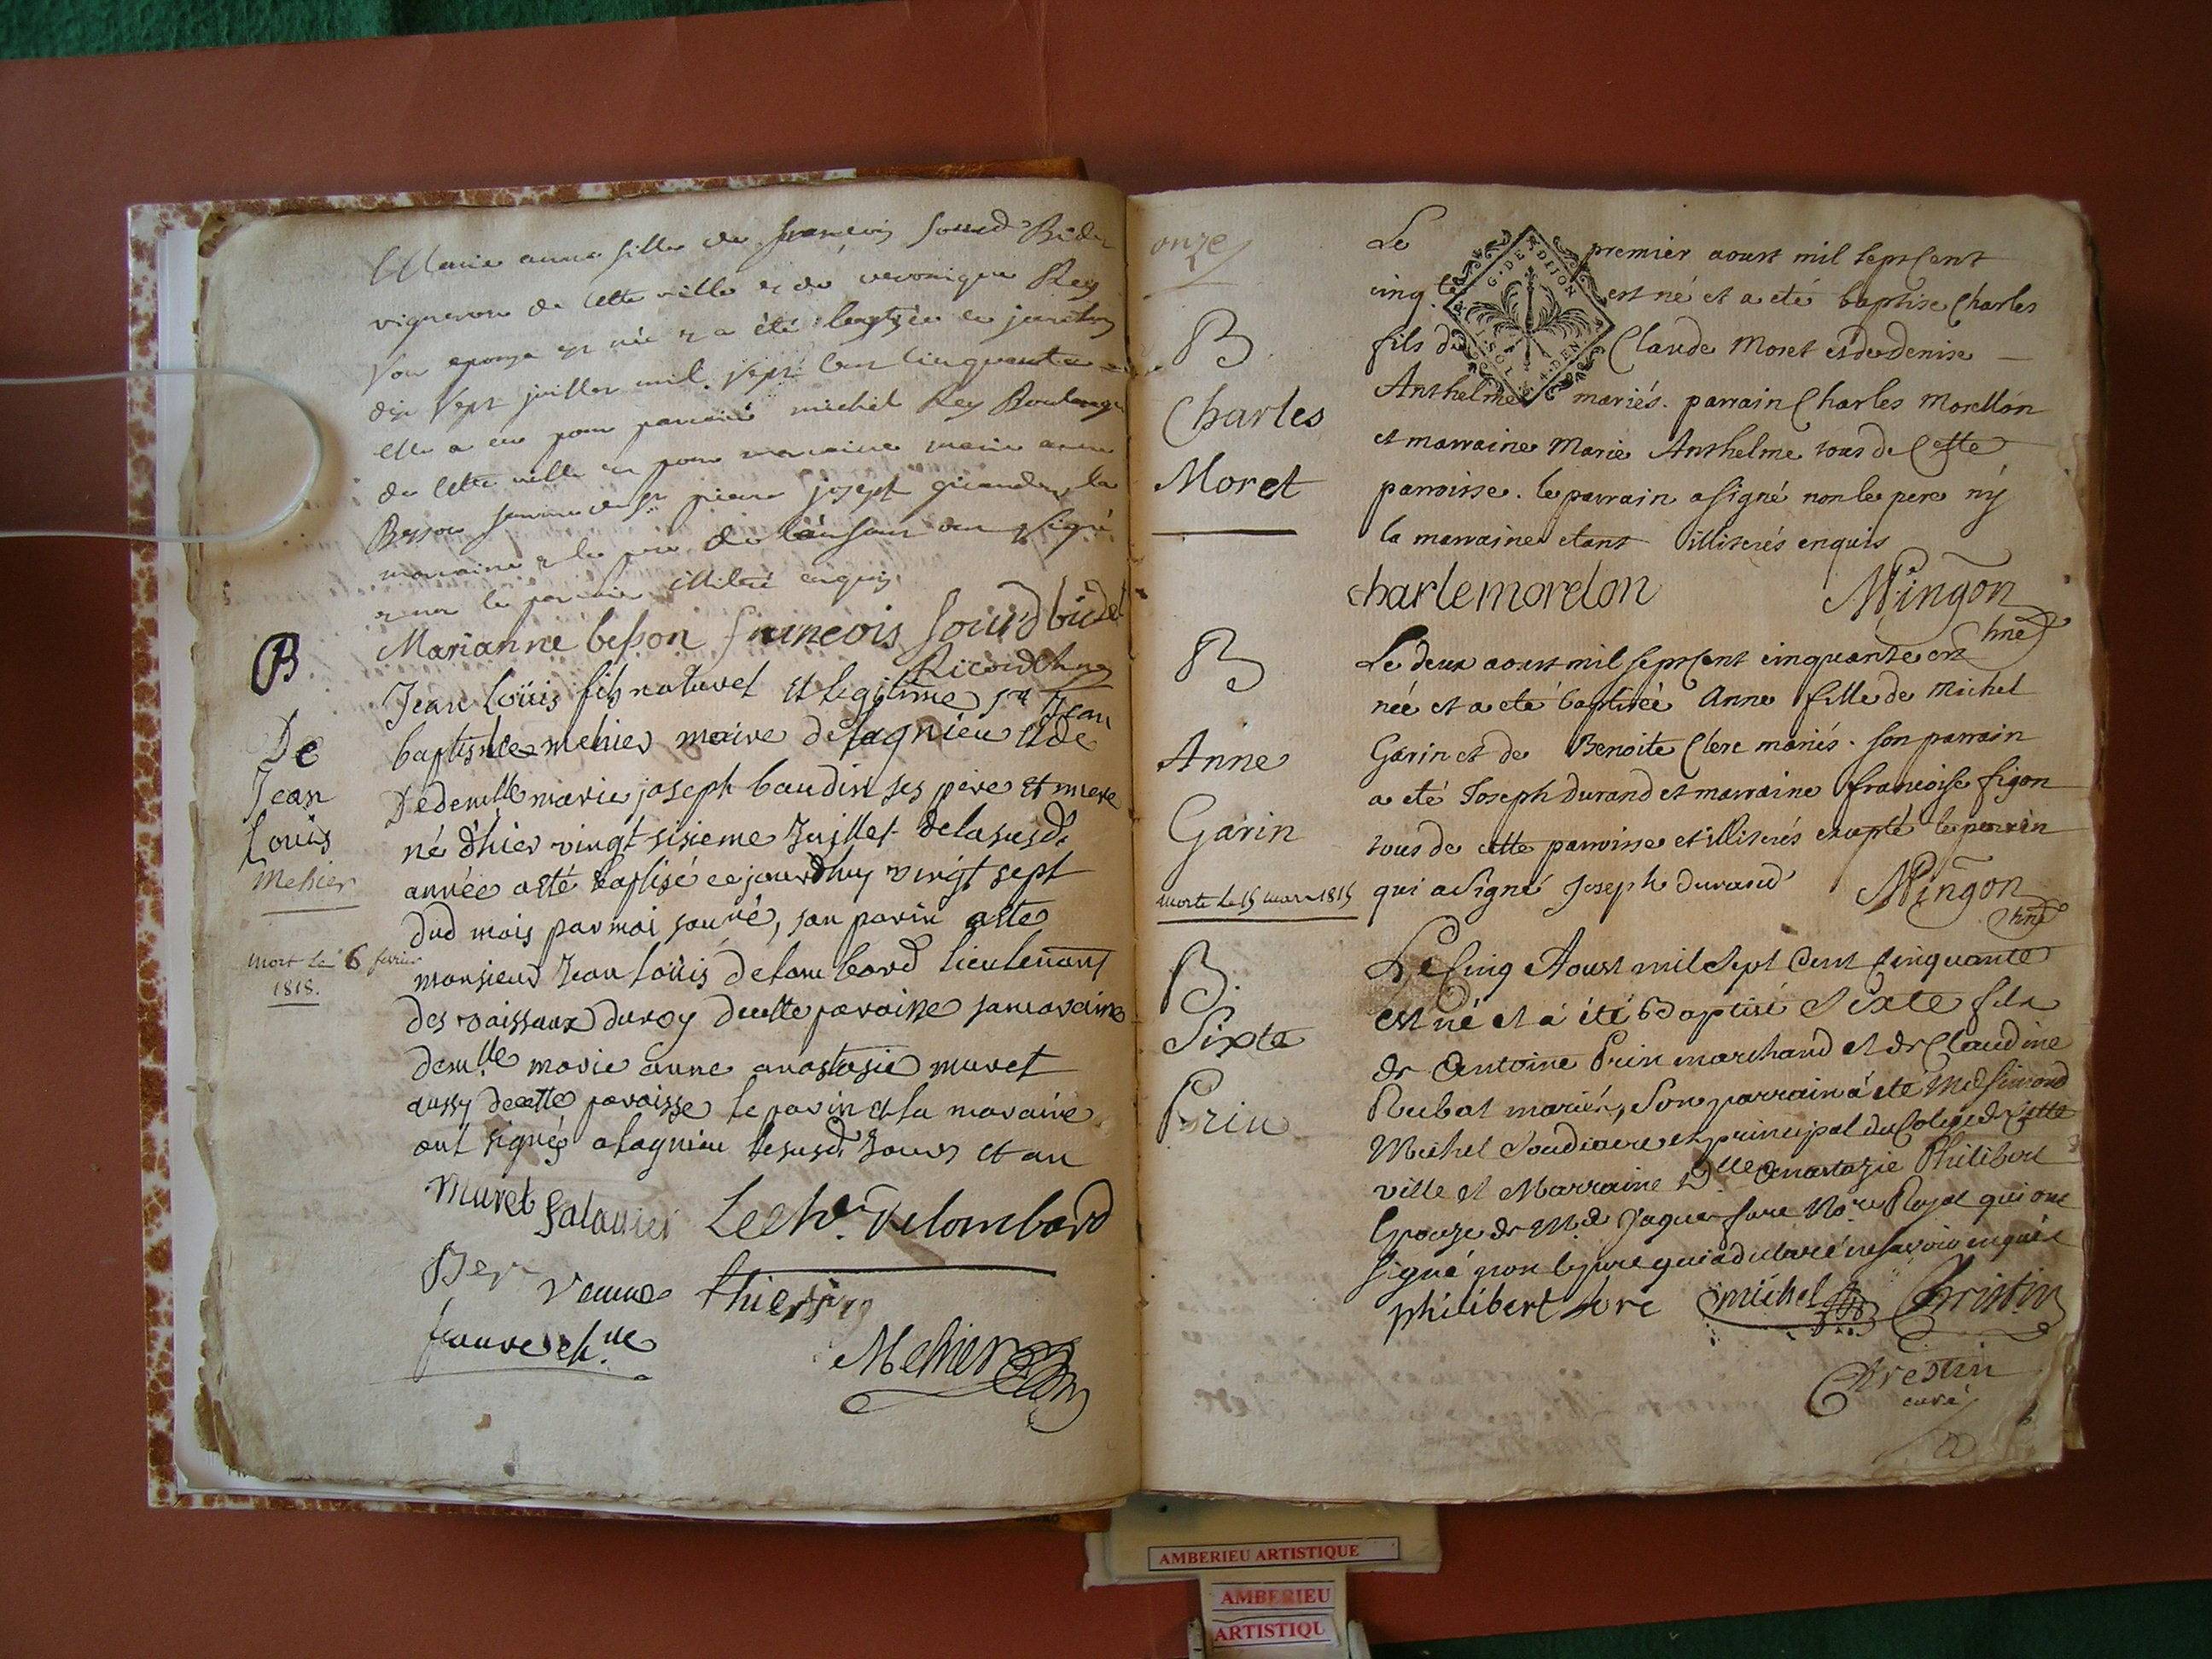 Marie anne fille de francois sourd Bidet
vigneron de cette ville et de veronique Rey
son epouse est née et a été baptizée le jourdhuy
dix sept juillet mil sept cent cinquante
elle a eu pour parrain michel Rey Boulanger
de cette ville et pour marraine marie anne
Besson femme de sr pierre joseph la
marraine et le pere de l'enfant ont signé
et non le parrain illitéré enquis
Marianne besson francois sourd bidet
Ricord
B
De
Jean
Louis
Mehier
mort le 6 fevrier
1818.
Jean Loüis fils naturel et legitime sr Jean
baptiste mehier maire de lagnieu et de
Dedemlle marie joseph baudin ses pere et mere
né d'hier vingt sisieme Juillet de la susd.
année a esté baptisé ce jourdhuy vingt sept
dud mois par moi souné, son parin a esté
monsieur Jean Loüis delombard lieutenant
des vaissaux du roy de cette paroisse sa maraine
demlle marie anne anastasie muret
aussy de cette paroisse le parin et la maraine
ont signés a lagnieu le susd. Jour et an
Muret Lech.r Delombard
thierry
faure
Mehier
onze
B
Charles
Moret
Le premier aoust mil sept Cent
cinq.te est né et a eté baptise Charles
G. DE DIJON
fils de Claude Moret et de denise
Anthelme mariés. parrain Charles Morellon
et marraine Marie Anthelme tous de Cette
parroisse. le parrain a signé non le pere nÿ
la marraine etant illiterés enquis
charle morelon Mingon
B
Anne
Garin
morte le 15 mars 1815
Le deux aoust mil sept Cent cinquante est
née et a eté baptisée Anne fille de Michel
Garin et de Benoite Clerc mariés. son parrain
a eté Joseph Durand et marraine francoise figon
tous de cette parroisse et illiterés exapté le parrein
qui a signé Joseph durand Mingon
B.
Sixte
Prin
Le Cinq Aoust mil sept Cent Cinquante
est né et a été Baptisé Sixte fils
de Antoine Prin marchand et de Claudine
Rubat mariés, son parrain á eté Simond
Michel Soudiacre et principal du Colege de Cette
ville et Marraine D.lle Anastazie Philibert
Epouze de M.e Jaques fare No.re Royal qui ont
signé non le pere qui a declaré ne savoir enquis
philibert fare michel Christin
Crestin
curé
AMBERIEU ARTISTIQUE
AMBERIEU
ARTISTIQU